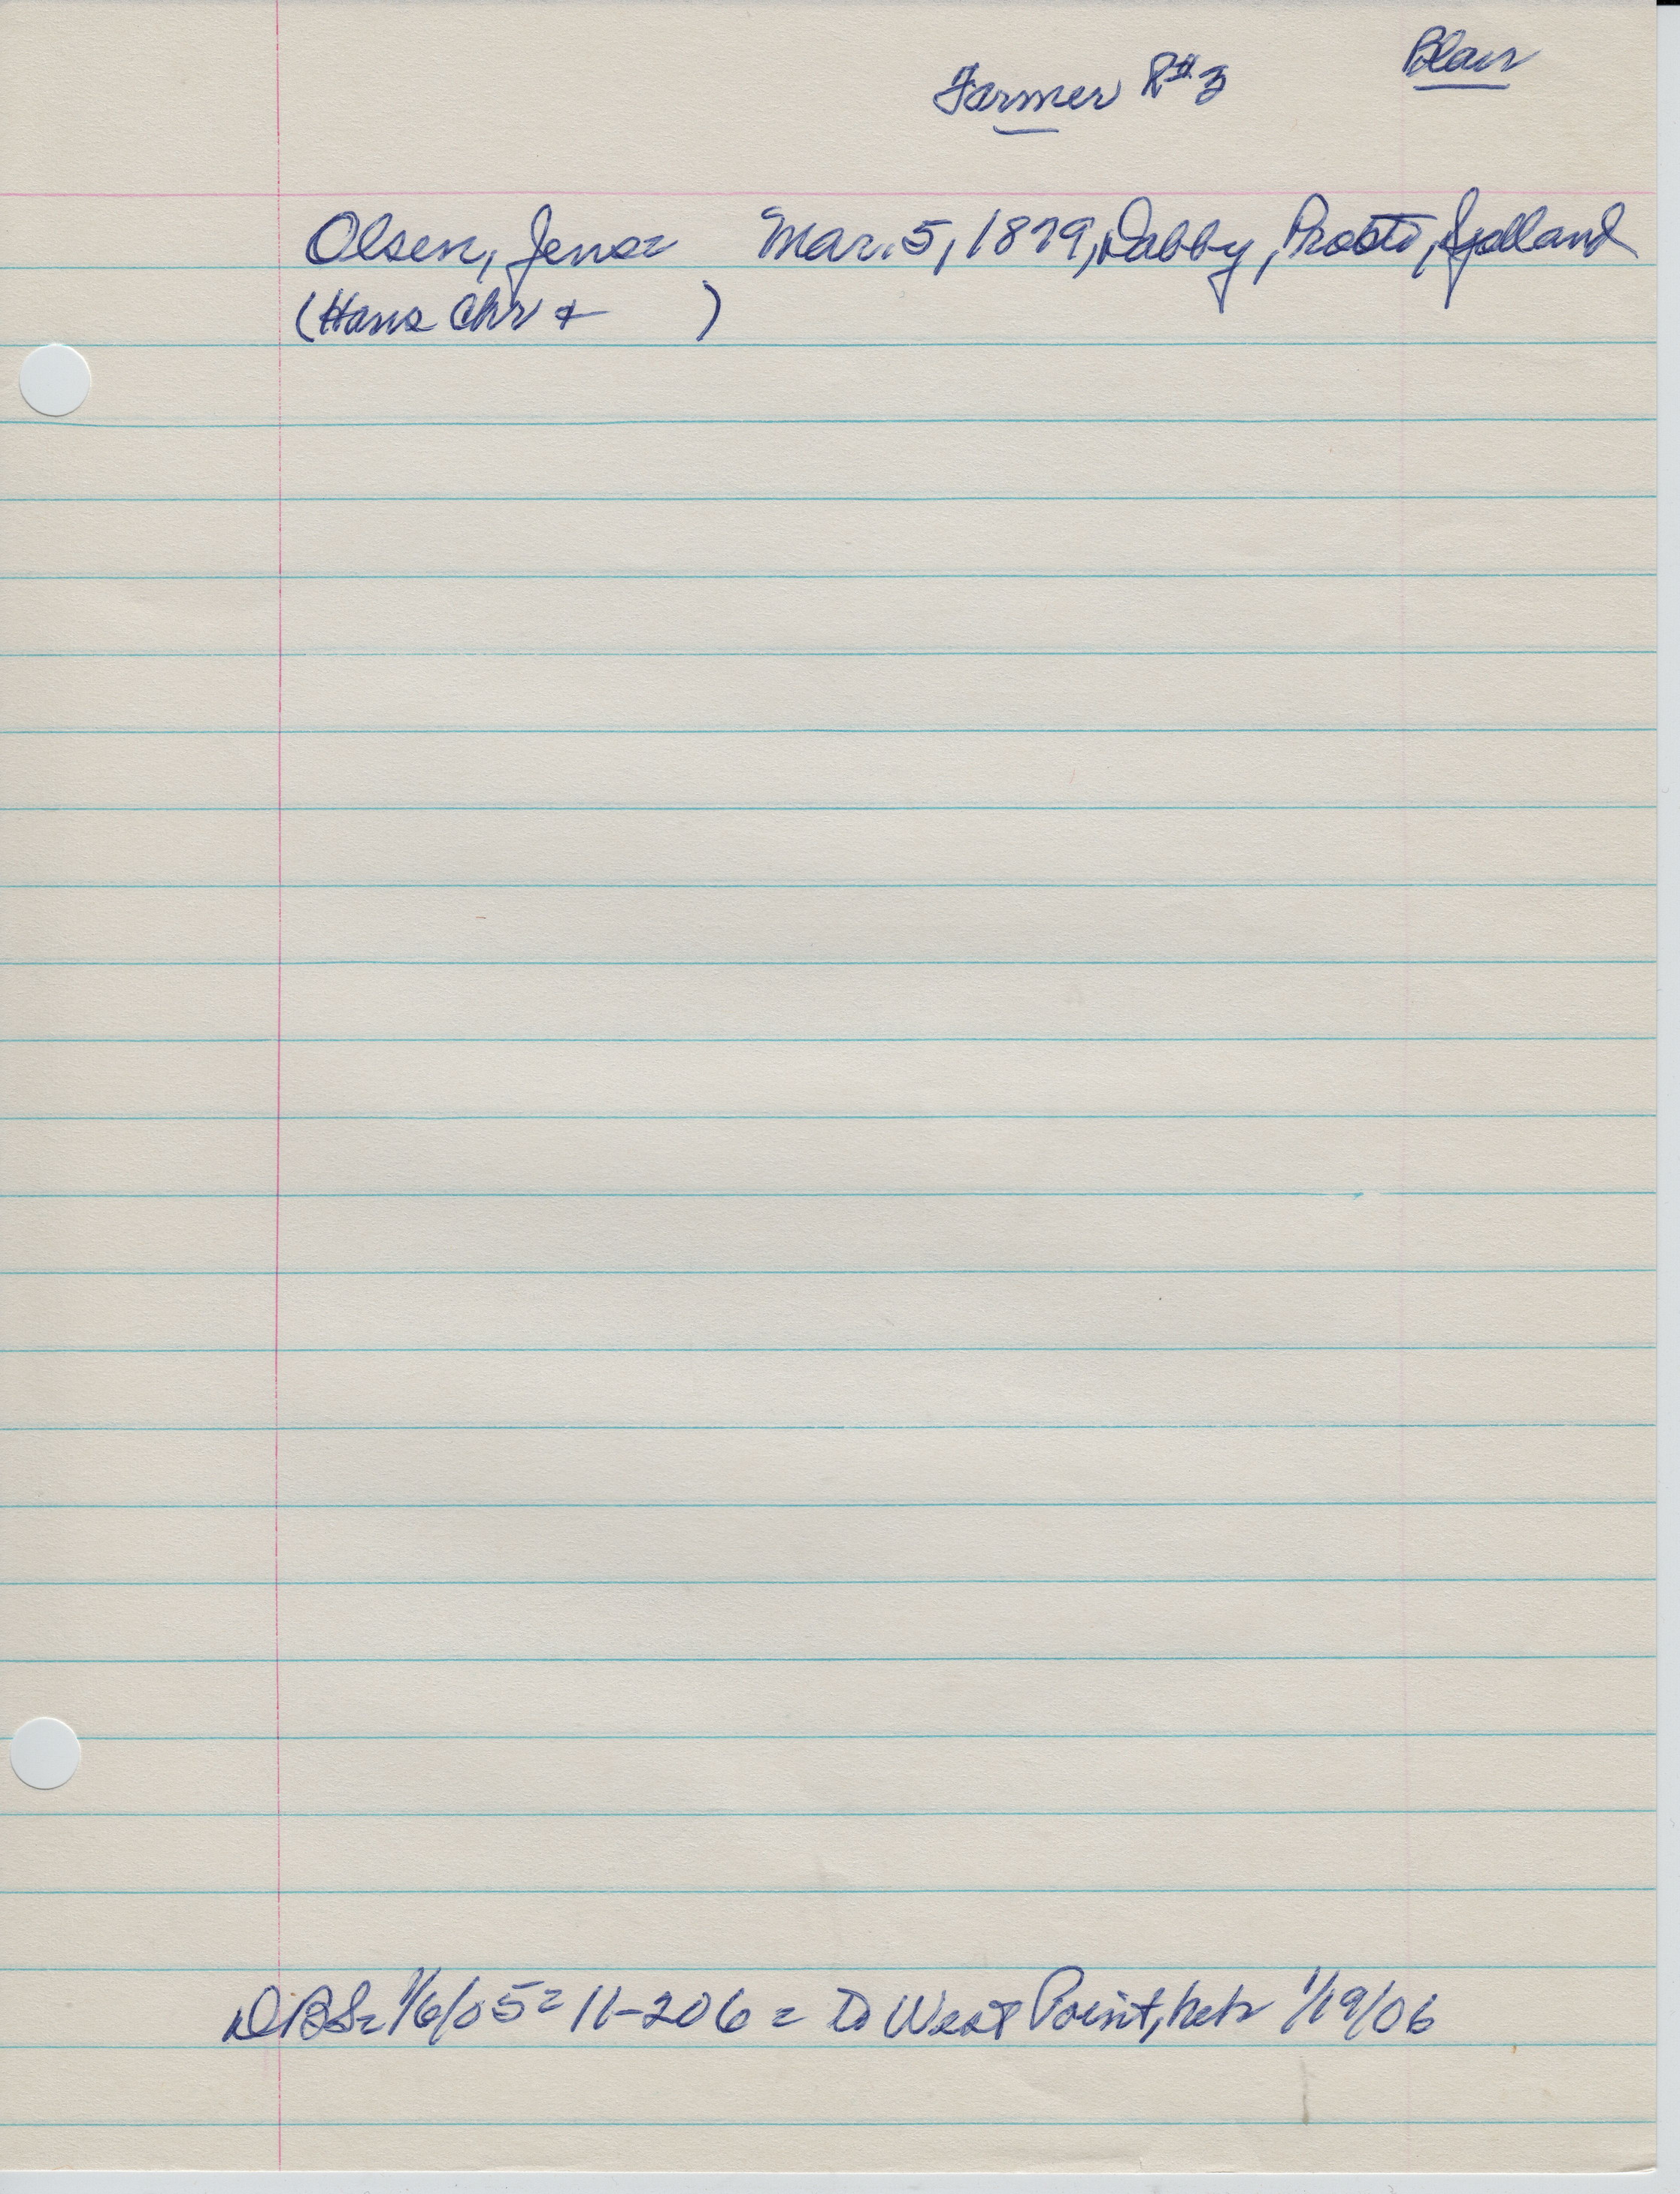 Blair
Farmer R#3
Olsen, Jens= Mar. 5, 1879, Dabby, Præstö, Sjælland
(Hans Chr + )
DBS= 1/6/05= 11-206= To West Point, Nebr 1/19/06